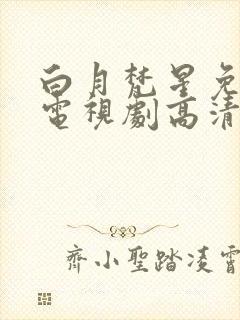 白月梵星免
電視劇高清
齊小聖踏凌霄